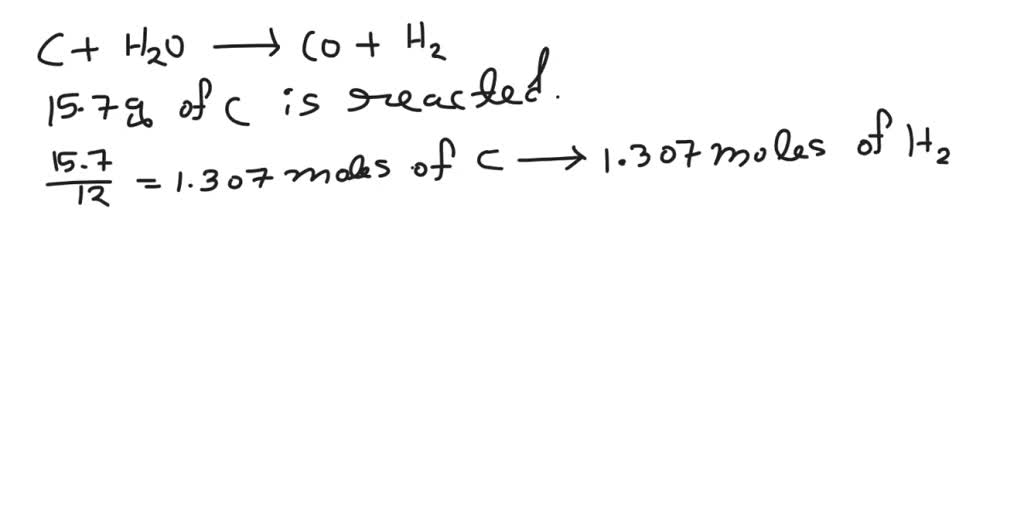 C + H₂O ⟶ CO + H₂
15.7 g of C is reacted.
15.7/12 = 1.307 moles of C ⟶ 1.307 moles of H₂